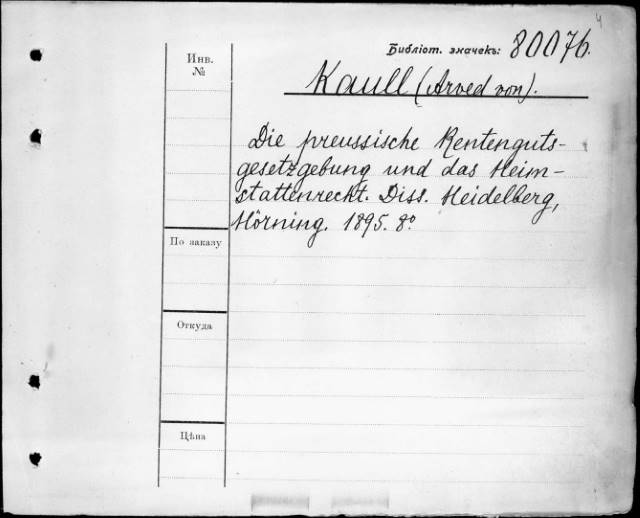 4
Библіот. значекъ: 80076.
Инв.
№
Kaull (Arved von).
Die preussische Rentenguts-
gesetzgebung und das Heim-
stattenreckt. Diss. Heidelberg,
Hörning. 1895. 8º
По заказу
Откуда
Цѣна